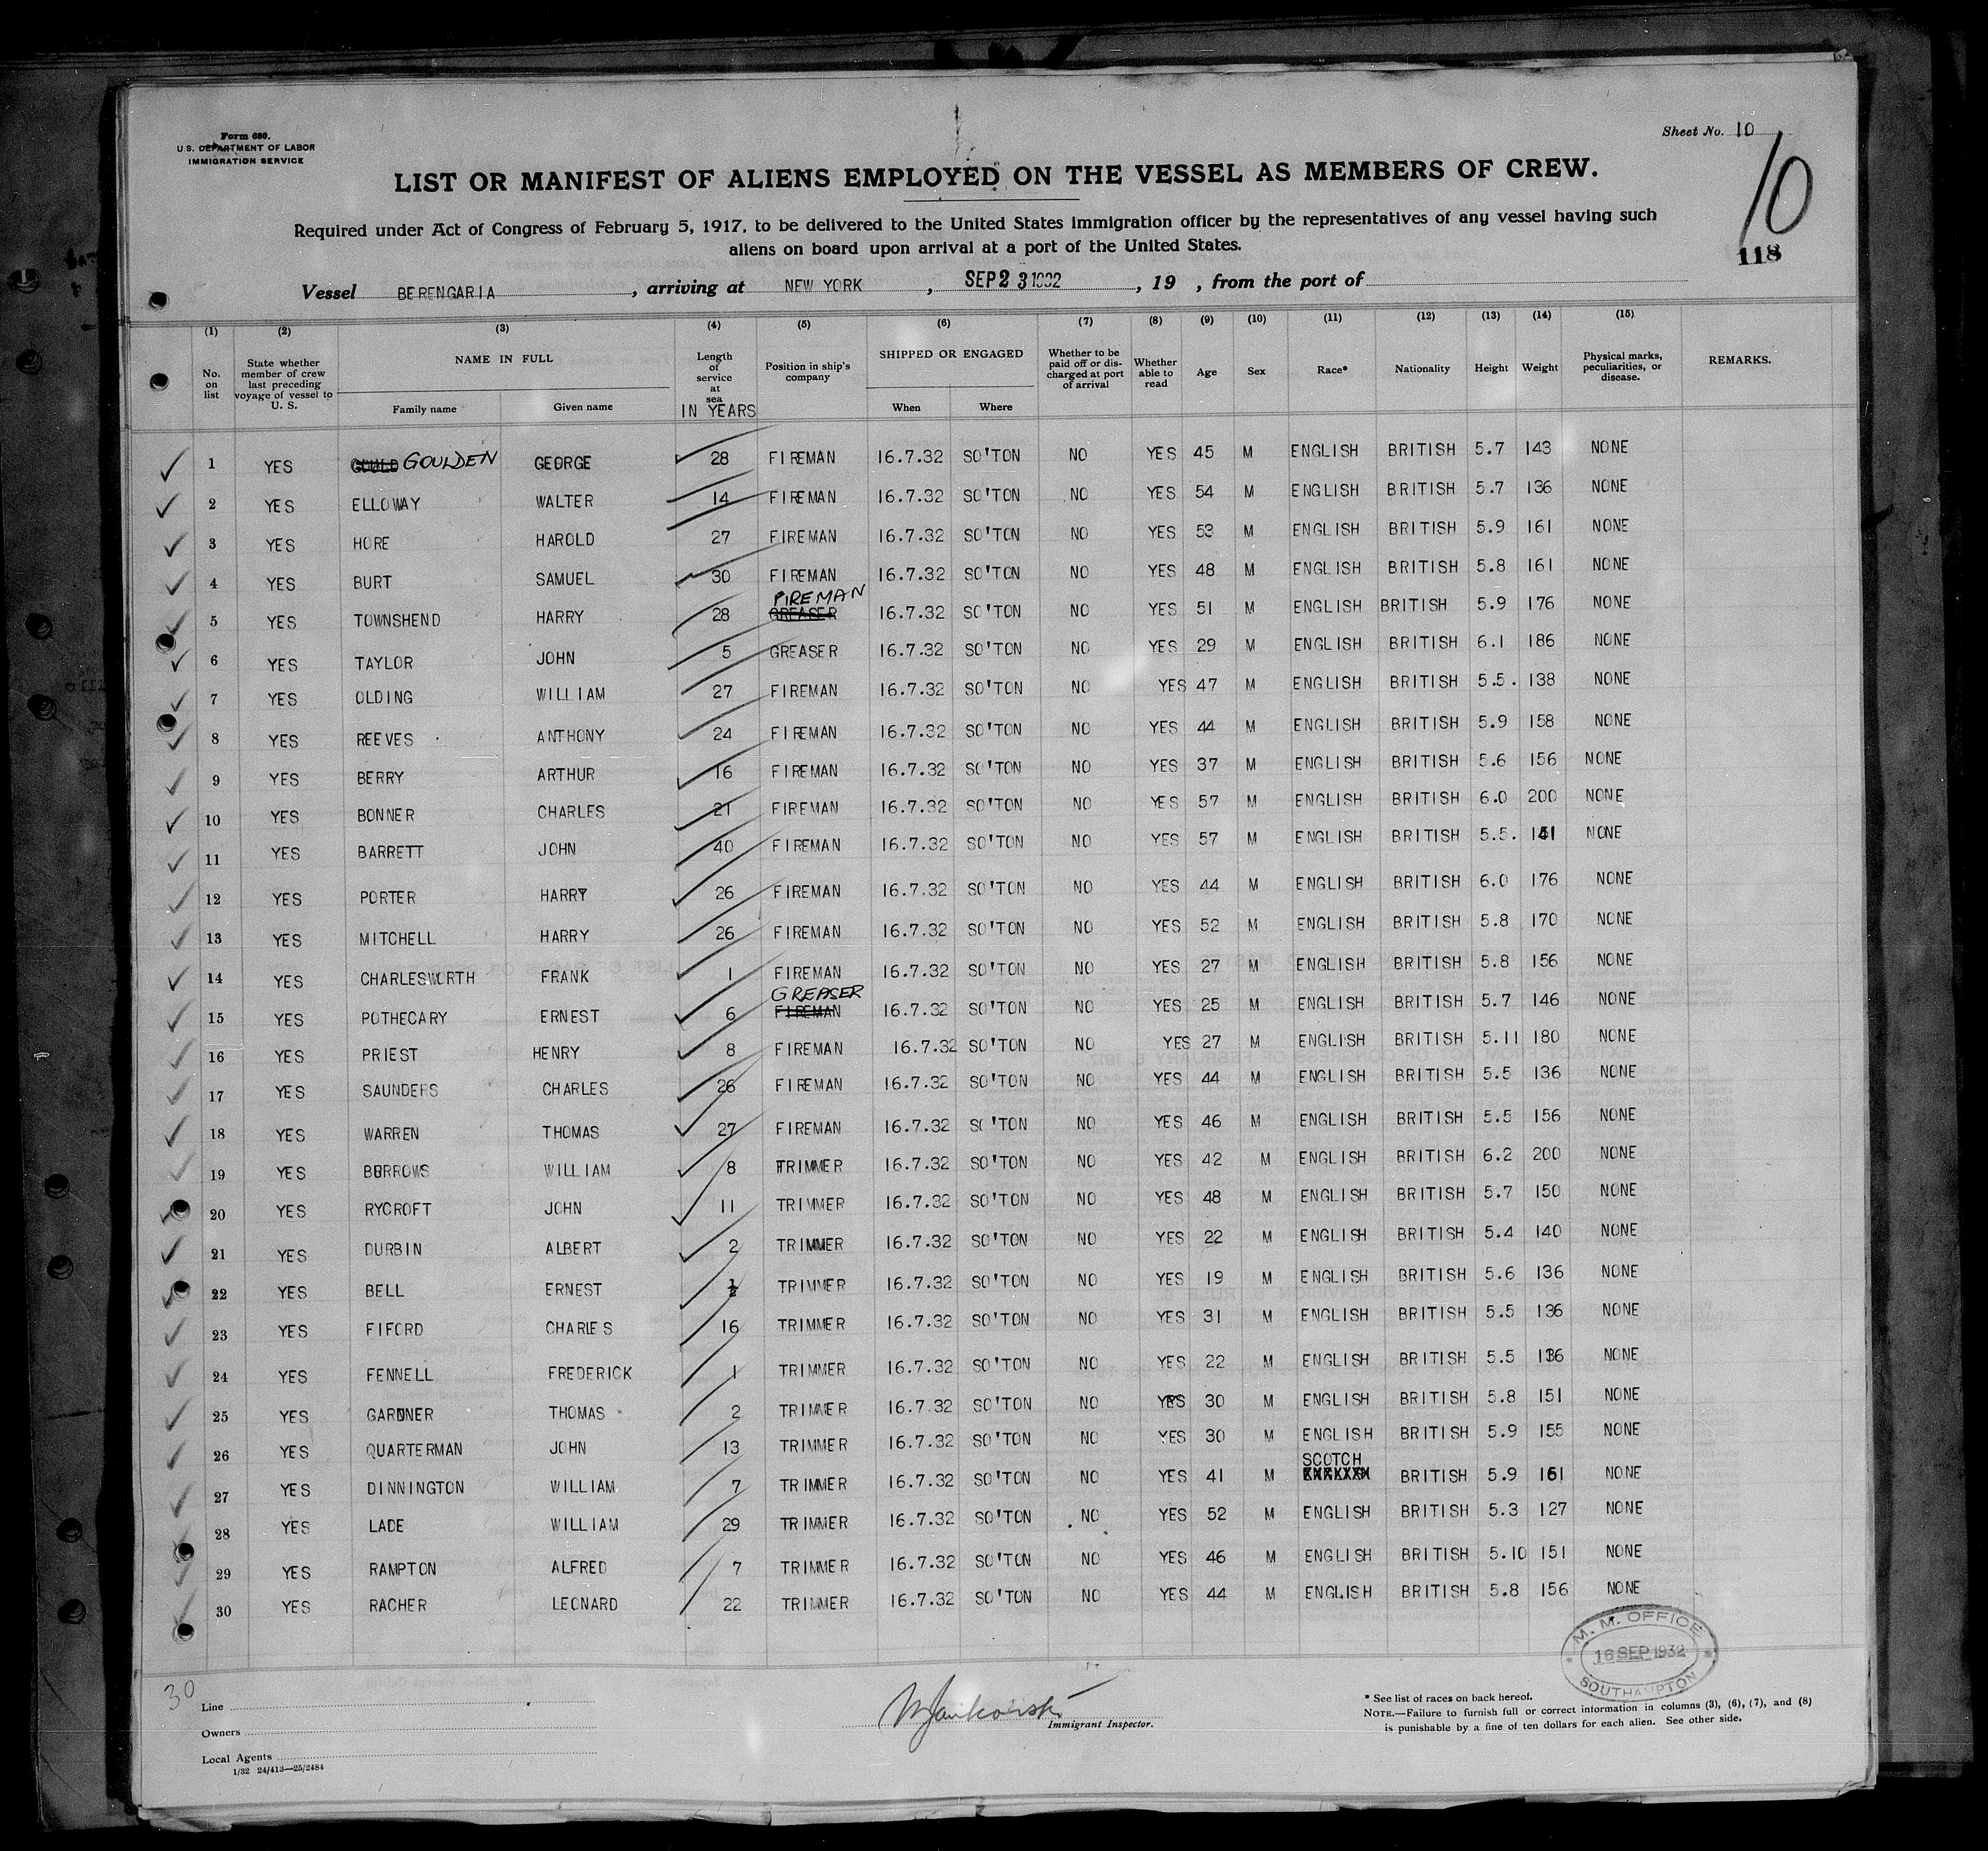 Form 680.
U.S. DEPARTMENT OF LABOR
IMMIGRATION SERVICE
Sheet No. 10
10
118
LIST OR MANIFEST OF ALIENS EMPLOYED ON THE VESSEL AS MEMBERS OF CREW.
Required under Act of Congress of February 5, 1917, to be delivered to the United States immigration officer by the representatives of any vessel having such
aliens on board upon arrival at a port of the United States.
Vessel BERENGARIA, arriving at NEW YORK, SEP 2 3 1932, 19 , from the port of
(1) (2) (3) (4) (5) (6) (7) (8) (9) (10) (11) (12) (13) (14) (15)
No. on list State whether member of crew last preceding voyage of vessel to U. S. NAME IN FULL Family name Given name Length of service at sea IN YEARS Position in ship's company SHIPPED OR ENGAGED When Where Whether to be paid off or discharged at port of arrival Whether able to read Age Sex Race* Nationality Height Weight Physical marks, peculiarities, or disease. REMARKS.
1 YES GOULD GOULDEN GEORGE 28 FIREMAN 16.7.32 SO'TON NO YES 45 M ENGLISH BRITISH 5.7 143 NONE
2 YES ELLOWAY WALTER 14 FIREMAN 16.7.32 SO'TON NO YES 54 M ENGLISH BRITISH 5.7 136 NONE
3 YES HORE HAROLD 27 FIREMAN 16.7.32 SO'TON NO YES 53 M ENGLISH BRITISH 5.9 161 NONE
4 YES BURT SAMUEL 30 FIREMAN 16.7.32 SO'TON NO YES 48 M ENGLISH BRITISH 5.8 161 NONE
5 YES TOWNSHEND HARRY 28 GREASER FIREMAN 16.7.32 SO'TON NO YES 51 M ENGLISH BRITISH 5.9 176 NONE
6 YES TAYLOR JOHN 5 GREASER 16.7.32 SO'TON NO YES 29 M ENGLISH BRITISH 6.1 186 NONE
7 YES OLDING WILLIAM 27 FIREMAN 16.7.32 SO'TON NO YES 47 M ENGLISH BRITISH 5.5. 138 NONE
8 YES REEVES ANTHONY 24 FIREMAN 16.7.32 SO'TON NO YES 44 M ENGLISH BRITISH 5.9 158 NONE
9 YES BERRY ARTHUR 16 FIREMAN 16.7.32 SO'TON NO YES 37 M ENGLISH BRITISH 5.6 156 NONE
10 YES BONNER CHARLES 21 FIREMAN 16.7.32 SO'TON NO YES 57 M ENGLISH BRITISH 6.0 200 NONE
11 YES BARRETT JOHN 40 FIREMAN 16.7.32 SO'TON NO YES 57 M ENGLISH BRITISH 5.5. NONE
12 YES PORTER HARRY 26 FIREMAN 16.7.32 SO'TON NO YES 44 M ENGLISH BRITISH 6.0 176 NONE
13 YES MITCHELL HARRY 26 FIREMAN 16.7.32 SO'TON NO YES 52 M ENGLISH BRITISH 5.8 170 NONE
14 YES CHARLESWORTH FRANK 1 FIREMAN 16.7.32 SO'TON NO YES 27 M ENGLISH BRITISH 5.8 156 NONE
15 YES POTHECARY ERNEST 6 FIREMAN GREASER 16.7.32 SO'TON NO YES 25 M ENGLISH BRITISH 5.7 146 NONE
16 YES PRIEST HENRY 8 FIREMAN 16.7.32 SO'TON NO YES 27 M ENGLISH BRITISH 5.11 180 NONE
17 YES SAUNDERS CHARLES 26 FIREMAN 16.7.32 SO'TON NO YES 44 M ENGLISH BRITISH 5.5 136 NONE
18 YES WARREN THOMAS 27 FIREMAN 16.7.32 SO'TON NO YES 46 M ENGLISH BRITISH 5.5 156 NONE
19 YES BURROWS WILLIAM 8 TRIMMER 16.7.32 SO'TON NO YES 42 M ENGLISH BRITISH 6.2 200 NONE
20 YES RYCROFT JOHN 11 TRIMMER 16.7.32 SO'TON NO YES 48 M ENGLISH BRITISH 5.7 150 NONE
21 YES DURBIN ALBERT 2 TRIMMER 16.7.32 SO'TON NO YES 22 M ENGLISH BRITISH 5.4 140 NONE
22 YES BELL ERNEST TRIMMER 16.7.32 SO'TON NO YES 19 M ENGLISH BRITISH 5.6 136 NONE
23 YES FIFORD CHARLES 16 TRIMMER 16.7.32 SO'TON NO YES 31 M ENGLISH BRITISH 5.5 136 NONE
24 YES FENNELL FREDERICK 1 TRIMMER 16.7.32 SO'TON NO YES 22 M ENGLISH BRITISH 5.5 136 NONE
25 YES GARDNER THOMAS 2 TRIMMER 16.7.32 SO'TON NO YES 30 M ENGLISH BRITISH 5.8 151 NONE
26 YES QUARTERMAN JOHN 13 TRIMMER 16.7.32 SO'TON NO YES 30 M ENGLISH BRITISH 5.9 155 NONE
27 YES DINNINGTON WILLIAM. 7 TRIMMER 16.7.32 SO'TON NO YES 41 M SCOTCH BRITISH 5.9 161 NONE
28 YES LADE WILLIAM 29 TRIMMER 16.7.32 SO'TON NO YES 52 M ENGLISH BRITISH 5.3 127 NONE
29 YES RAMPTON ALFRED 7 TRIMMER 16.7.32 SO'TON NO YES 46 M ENGLISH BRITISH 5.10 151 NONE
30 YES RACHER LEONARD 22 TRIMMER 16.7.32 SO'TON NO YES 44 M ENGLISH BRITISH 5.8 156 NONE
M. M. OFFICE
16 SEP 1932
SOUTHAMPTON
30
Line
Owners
Local Agents
1/32 24/413—25/2484
Immigrant Inspector.
* See list of races on back hereof.
NOTE.—Failure to furnish full or correct information in columns (3), (6), (7), and (8)
is punishable by a fine of ten dollars for each alien. See other side.